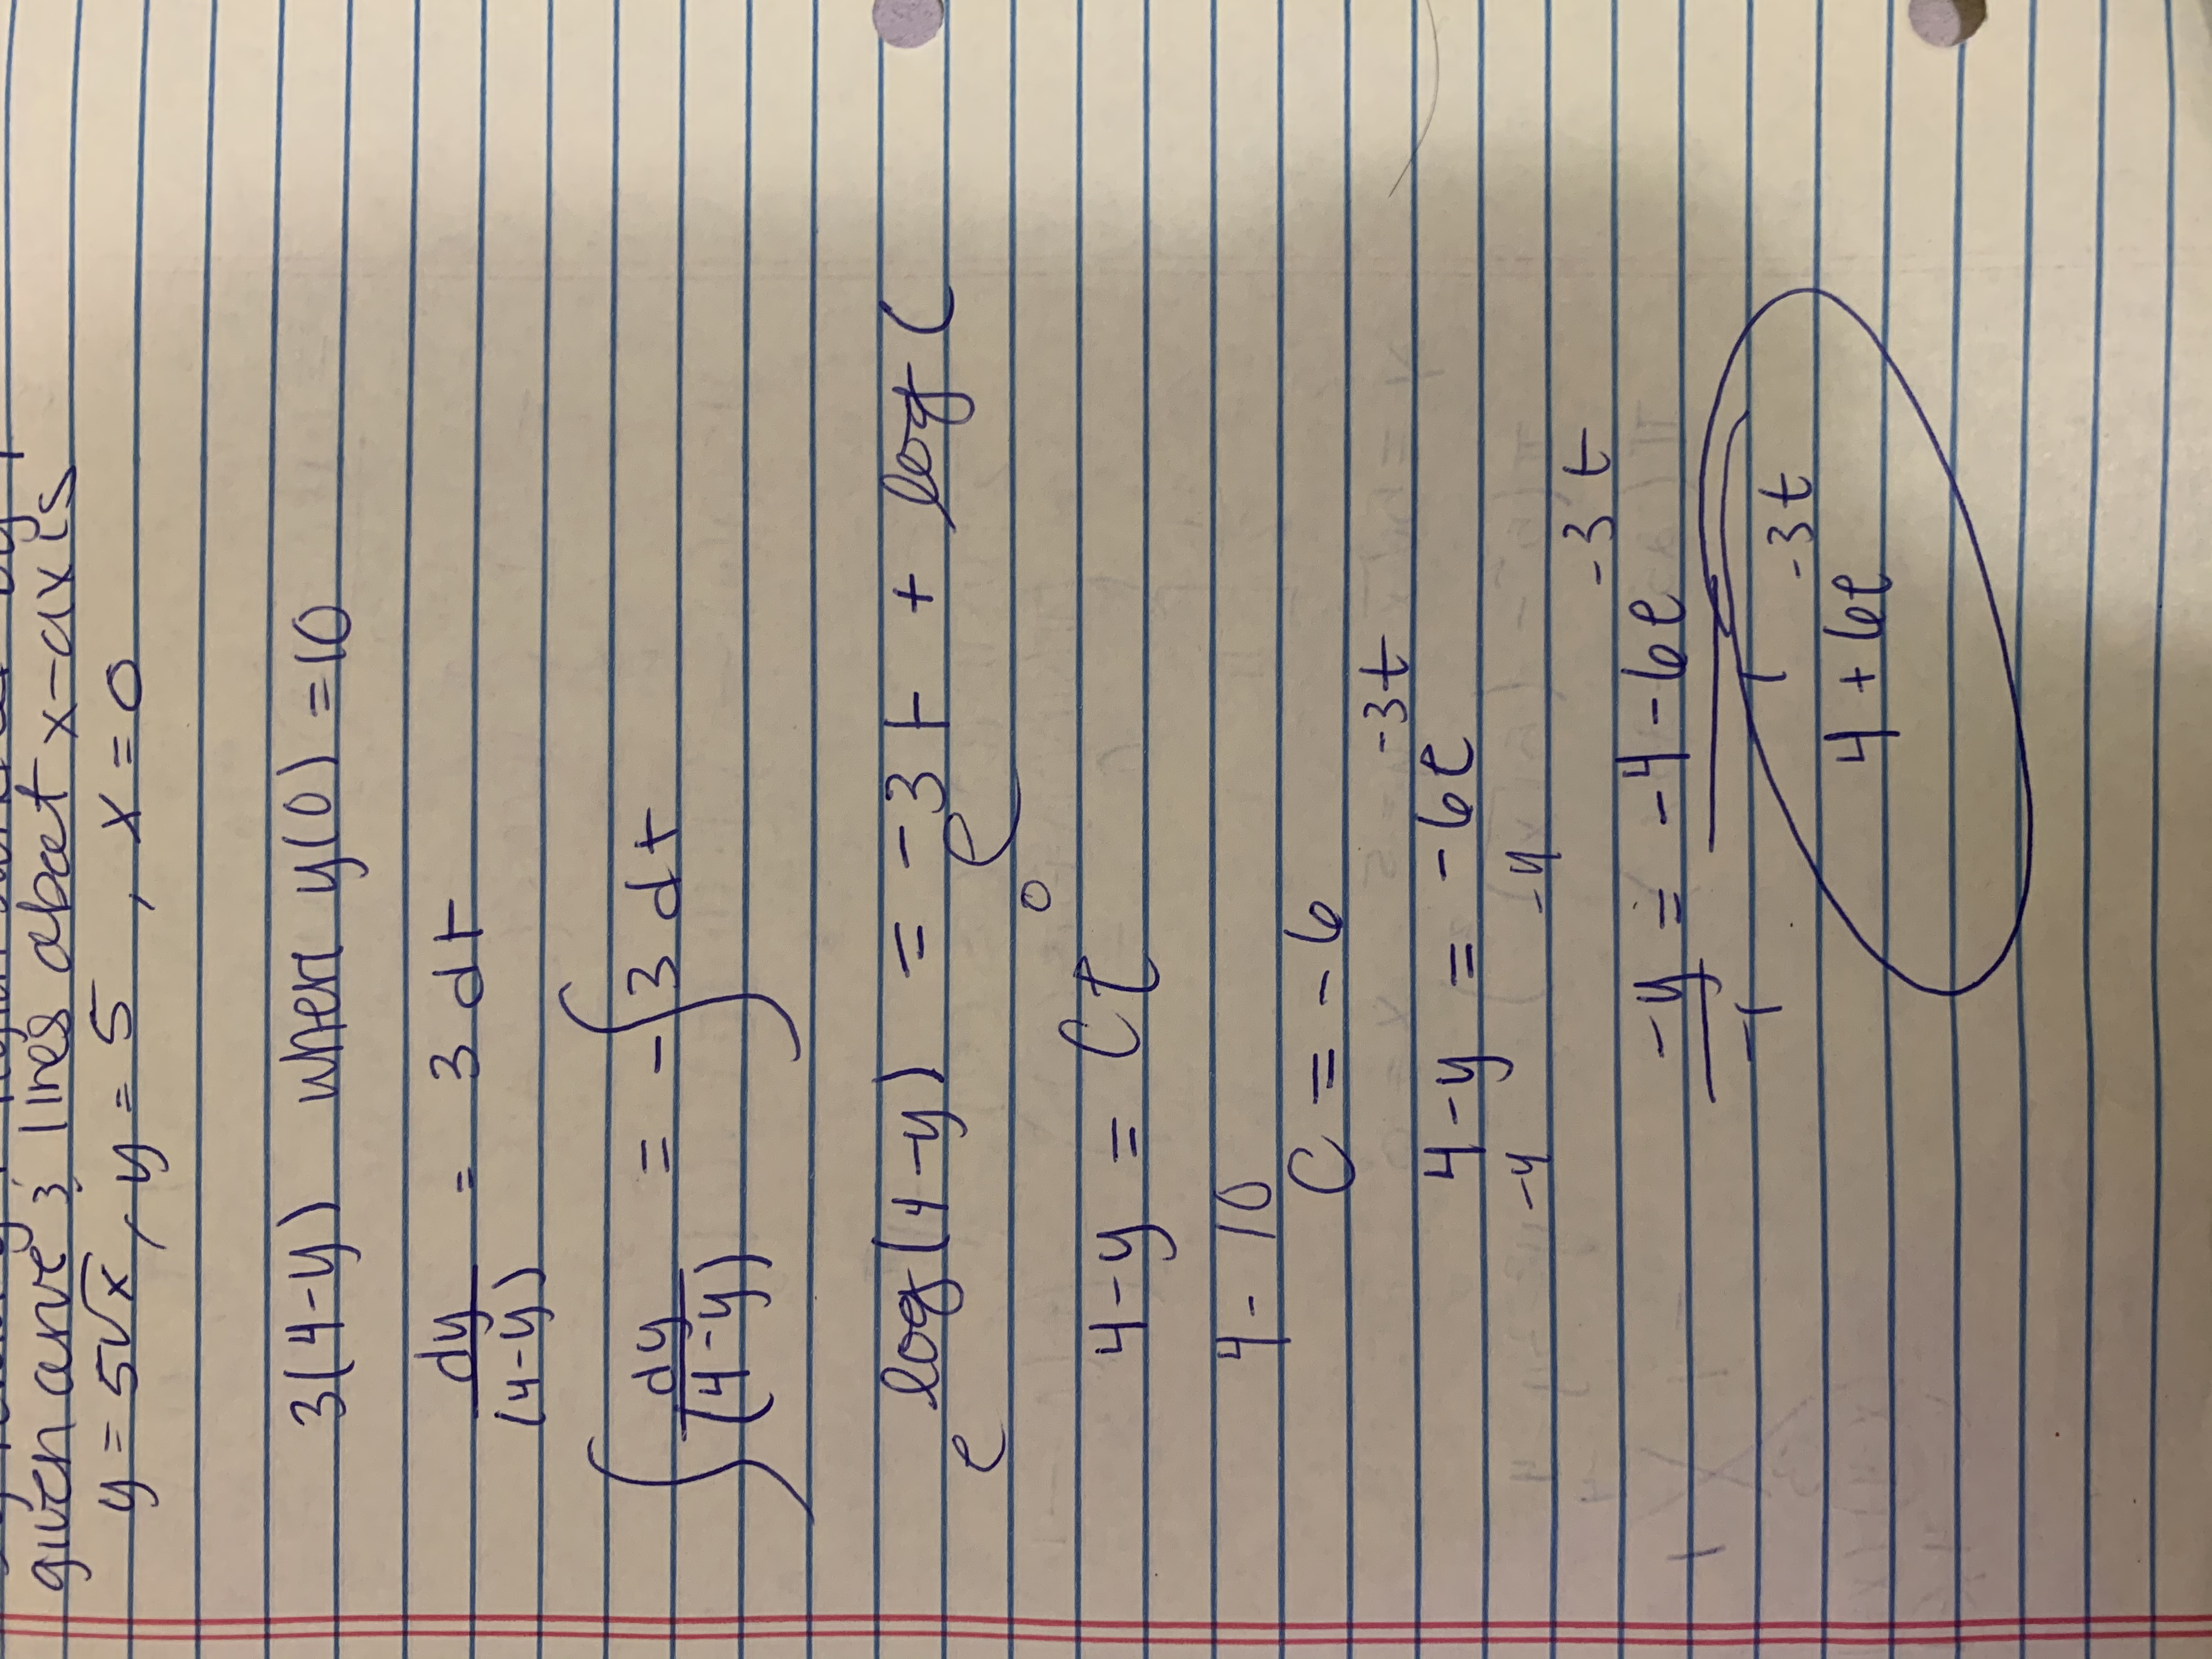 given curve & lines about x-axis
y = 5√x , y = 5 , x = 0
3(4-y) when y(0) = 10
dy/(4-y) = 3 dt
∫ dy/(4-y) = - ∫ 3 dt
e log(4-y) = e -3t + log C
4-y = Ce⁰
4 - 10
C = -6
4-y = -6e^-3t
-4 -4
-y/-1 = -4-6e^-3t/-1
4+6e^-3t